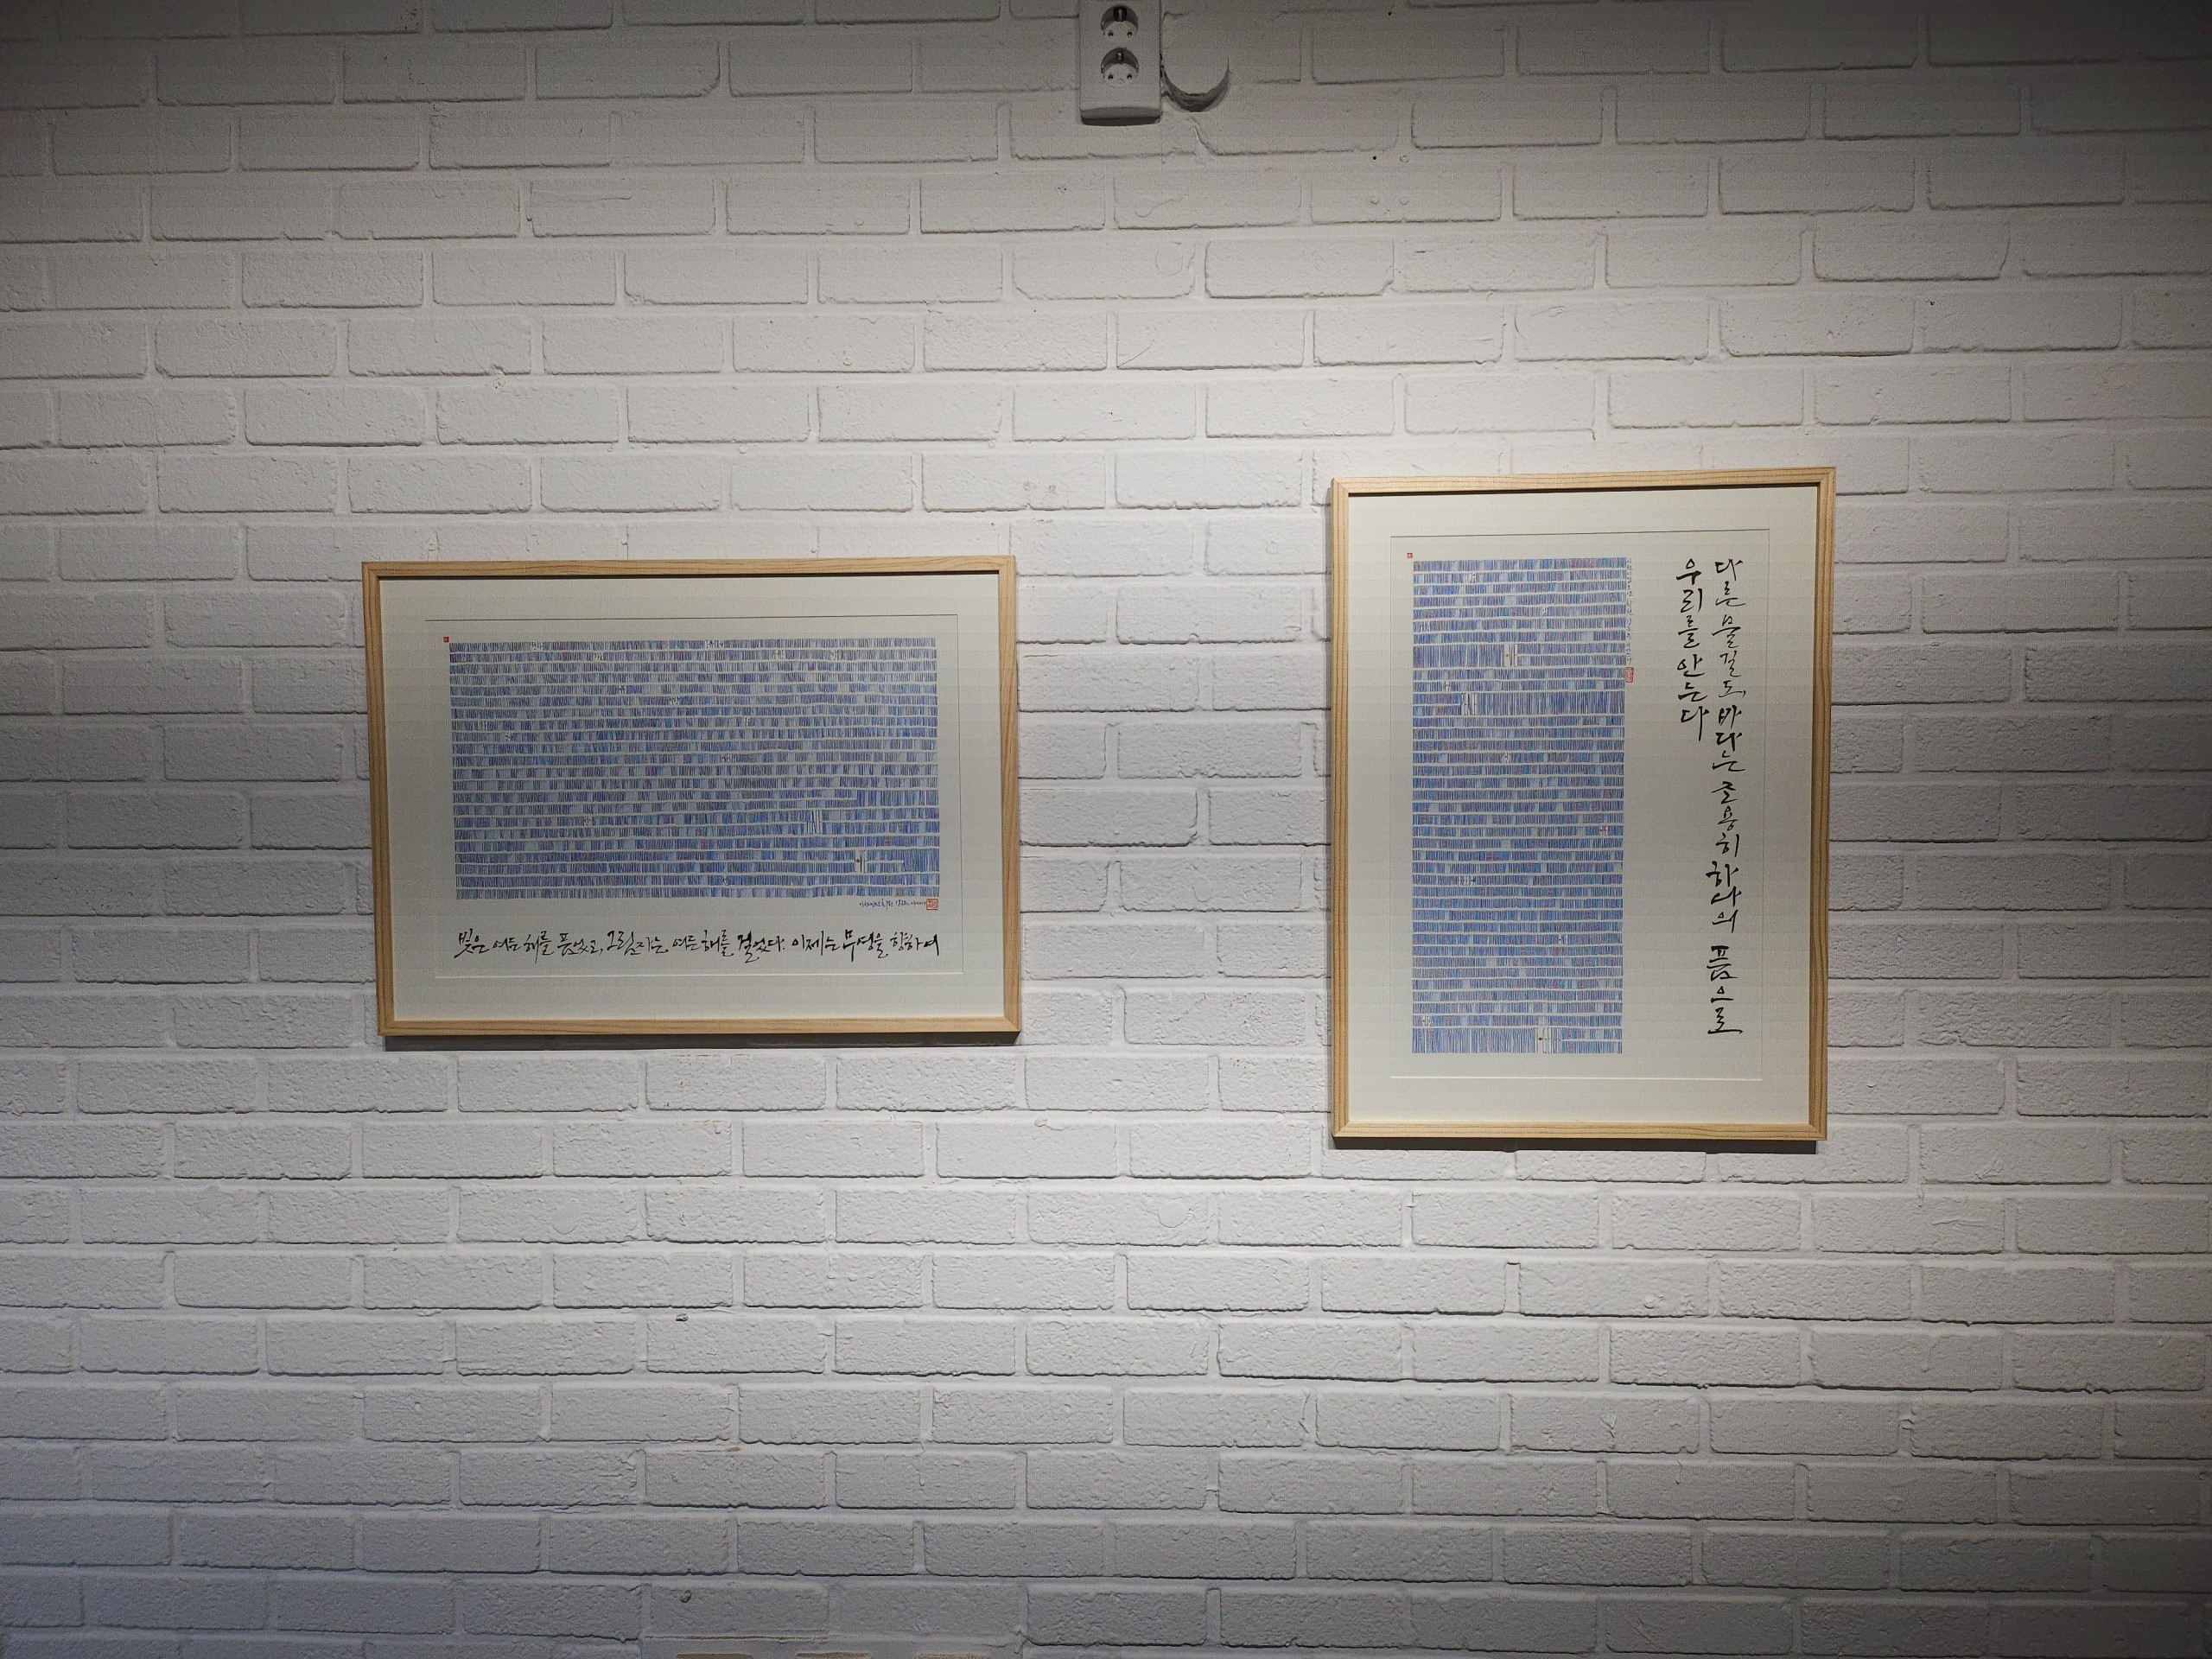 빛은 여든 해를 품었고, 그림자는 여든 해를 걸었다. 이제는 무영을 향하여
다른 물결도, 바다는 조용히 하나의 품으로
우리를 안는다